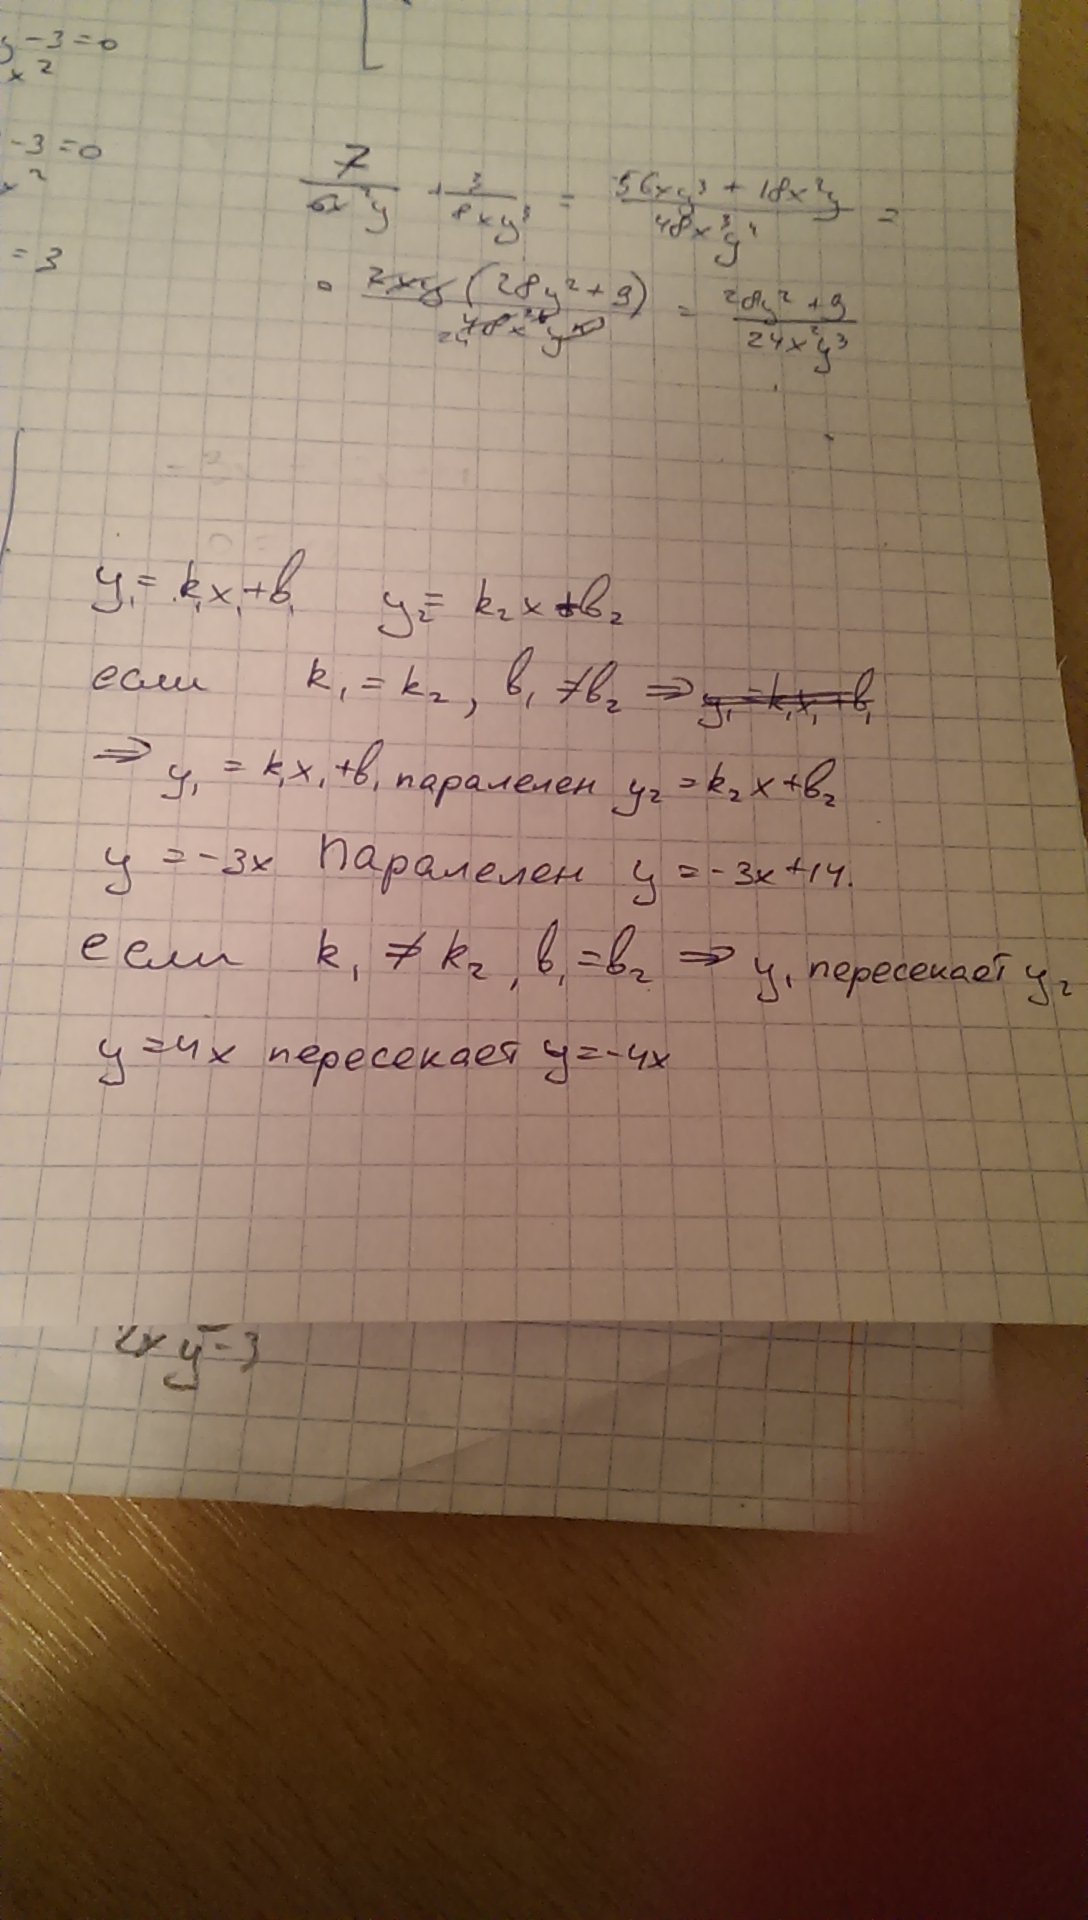 y - 3 = 0
x²
- 3 = 0
x²
= 3
7/(6x²y) + 3/(8xy³) = (56xy³ + 18x²y)/(48x³y⁴) =
= 2xy(28y² + 9)/(48x³y⁴) 24 = (28y² + 9)/(24x²y³)
y₁ = k₁x₁ + b₁ y₂ = k₂x + b₂
если k₁ = k₂, b₁ ≠ b₂ ⇒ y₁ = k₁x₁ + b₁
⇒ y₁ = k₁x₁ + b₁ паралелен y₂ = k₂x + b₂
y = -3x Паралелен y = -3x + 14.
если k₁ ≠ k₂, b₁ = b₂ ⇒ y₁ пересекает y₂
y = 4x пересекает y = -4x
2xy - 3